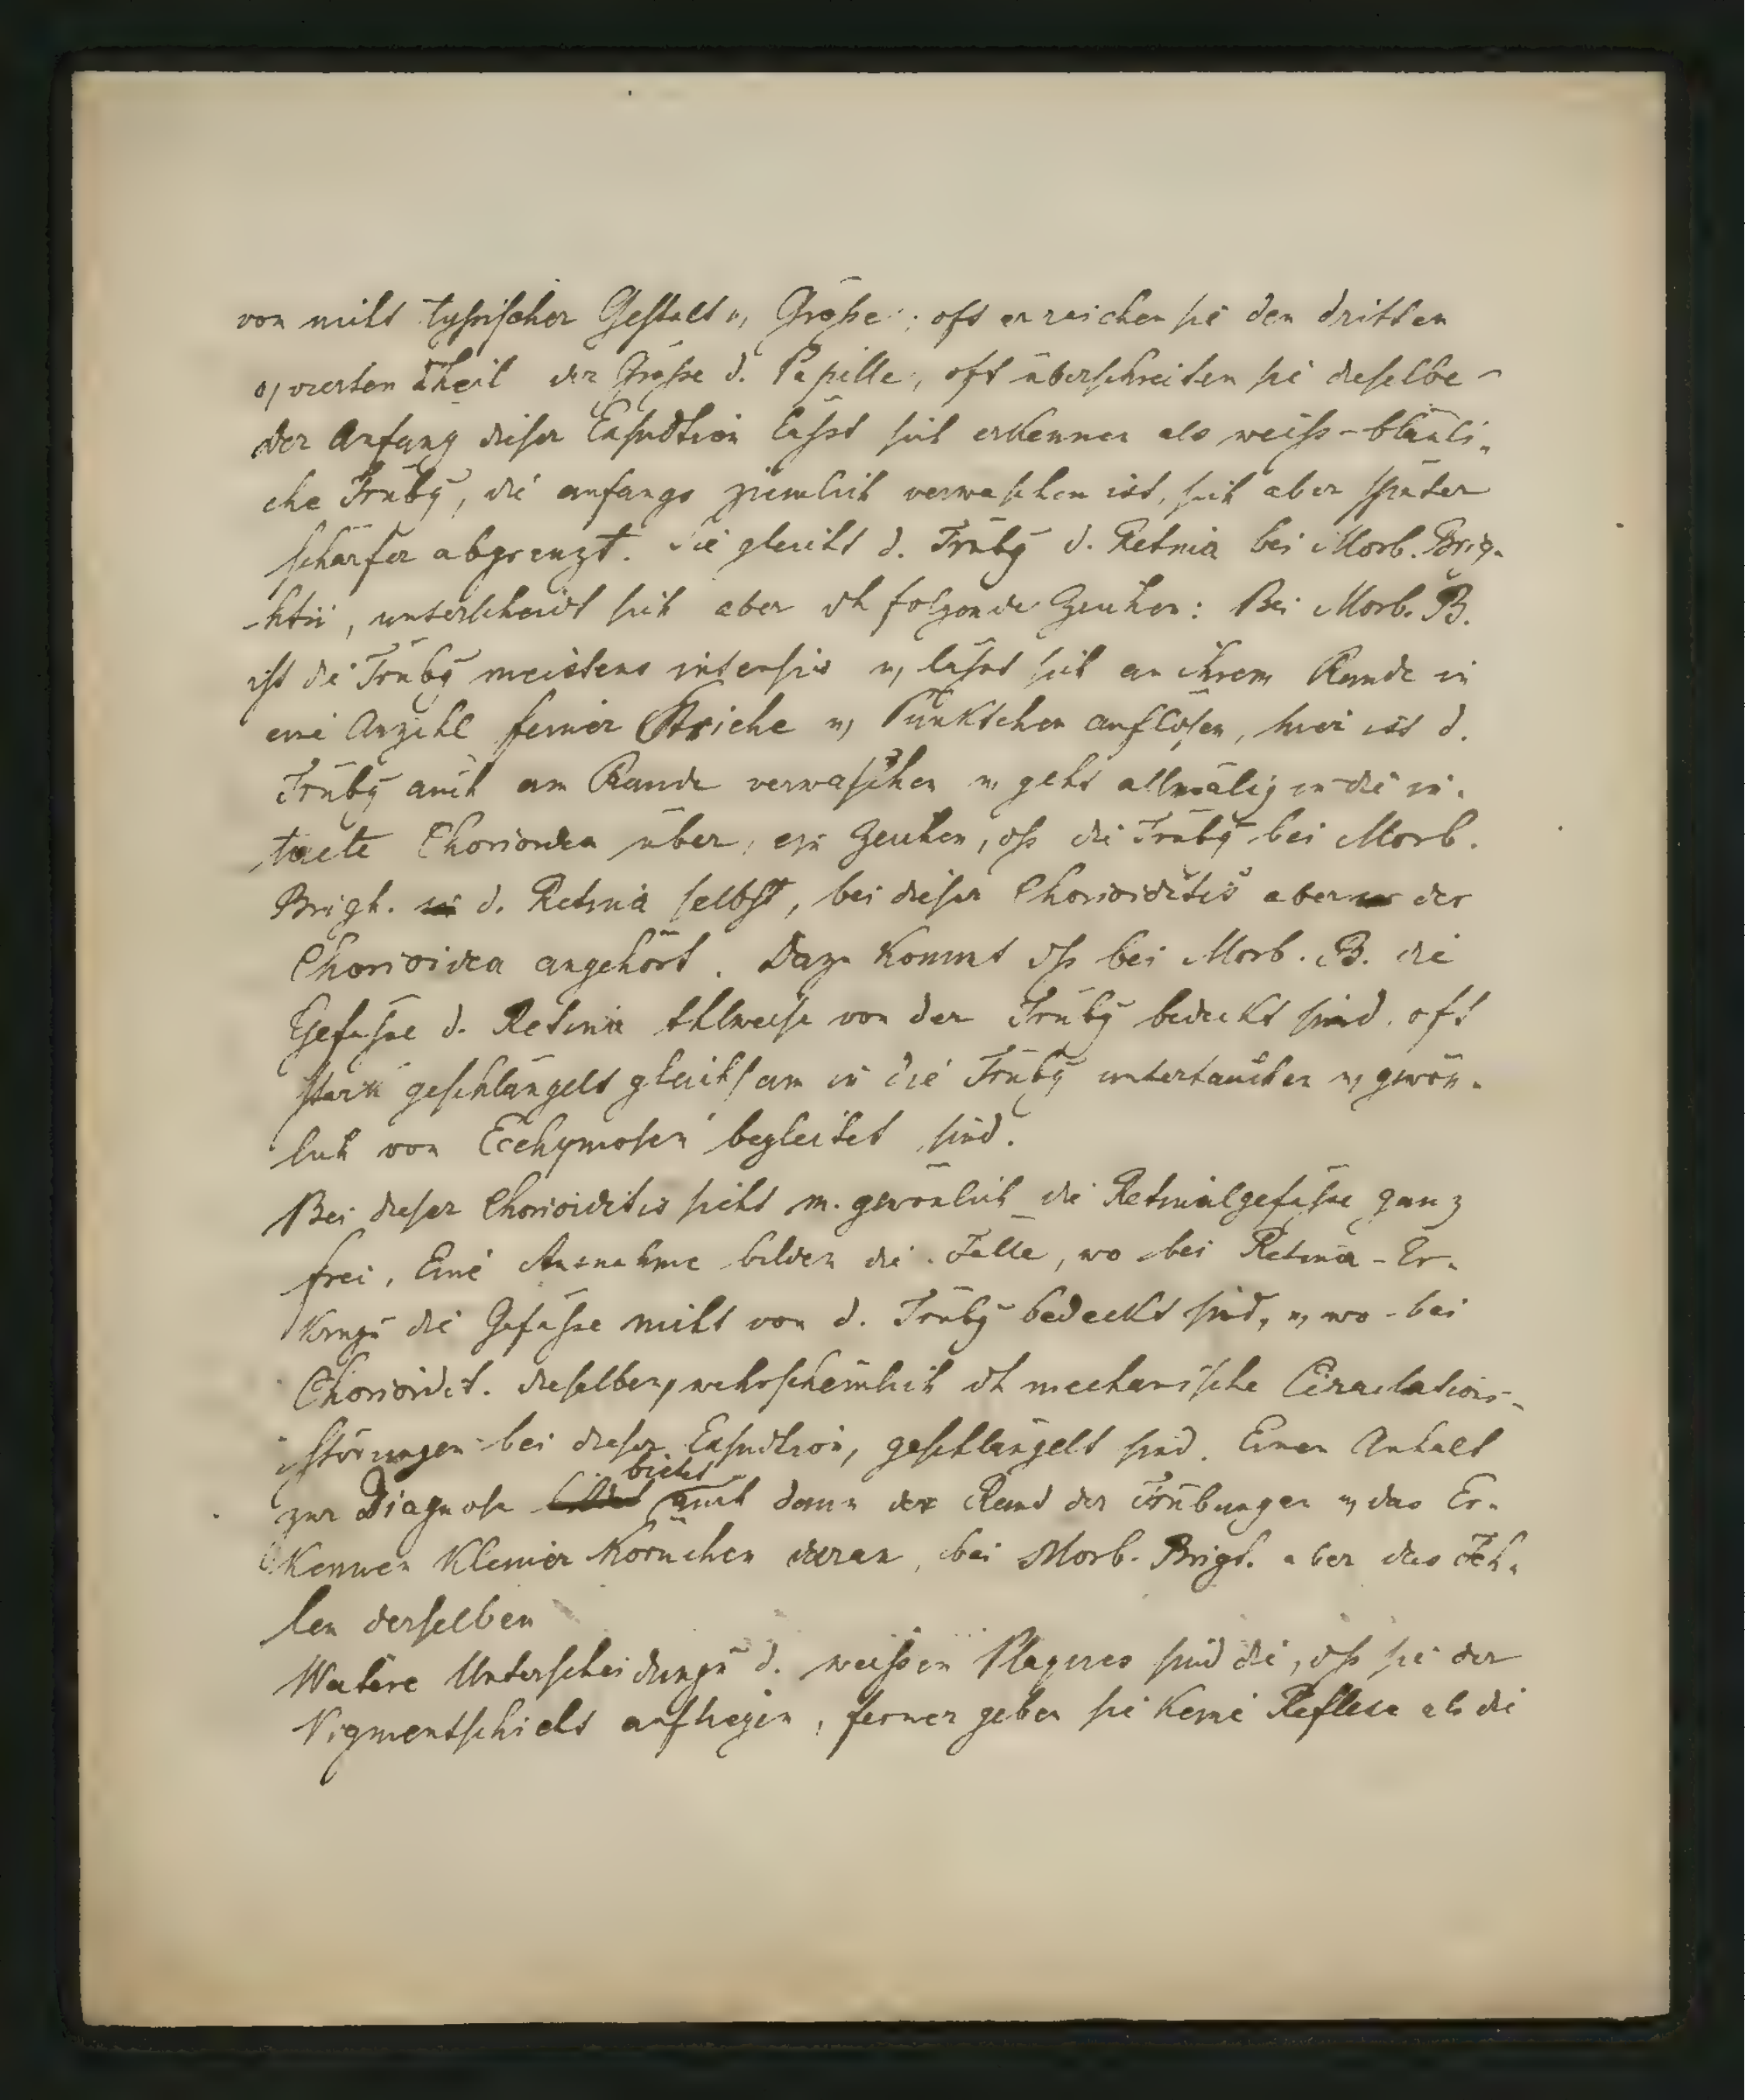 von nicht typischer Gestalt u, Größe; oft erreichen sie den dritten
o, vierten Theil der Größe d. Papille, oft überschreiten sie dieselbe –
Der Anfang dieser Exsudtion läßt sich erkennen als weiß-bläuli-
che Trübg, die anfangs ziemlich verwaschen ist, sich aber später
schärfer abgrenzt. Sie gleicht d. Trübg d. Retina bei Morb. Brig-
-htii, unterscheidt sich aber dh folgende Zeichen: Bei Morb. B.
ist die Trübg meistens intensiv u, läßt sich an ihrem Rande in
eine Anzahl feiner Striche u, Pünktchen auflösen, hier ist d.
Trübg auch am Rande verwaschen u, geht allmälig in die in-
tacte Chorioidea über, ein Zeichen, dß die Trübg bei Morb.
Brigh. d. Retina selbst, bei dieser Chorioiditis aber der
Chorioidea angehört. Dazu kommt dß bei Morb. B. die
Gefäße d. Retina thlweise von der Trübg bedeckt sind, oft
stark geschlängelt gleichsam in die Trübg untertauchen u, gewön-
lich von Ecchymosen begleitet sind.
Bei dieser Chorioiditis sieht m. gewönlich die Retinalgefäße ganz
frei, Eine Ausnahme bilden die Fälle, wo bei Retina-Er-
krngn die Gefäße nicht von d. Trübg bedeckt sind, u, wo bei
Chorioidit. dieselben, wahrscheinlich dh mechanische Circulations-
störungen bei dieser Exsudtion, geschlängelt sind. Einen Anhalt
zur Diagnose bietet auch dann der Rand der Trübungen u, das Er-
kennen kleiner Körnchen daran, bei Morb. Brigh. aber das Feh-
len derselben
Weitere Unterscheidungn d. weißen Plaques sind die, dß sie der
Pigmentschicht aufliegen, ferner geben sie keine Reflexe als die